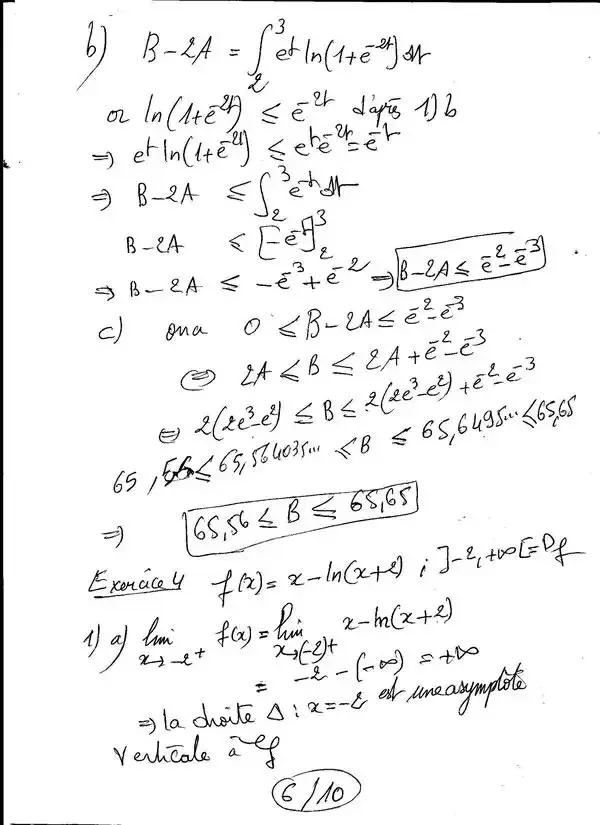 b) B-2A = ∫₂³ eᵗ ln(1+e⁻²ᵗ) dt
or ln(1+e⁻²ᵗ) ≤ e⁻²ᵗ d'après 1) b
⇒ eᵗ ln(1+e⁻²ᵗ) ≤ eᵗe⁻²ᵗ = e⁻ᵗ
⇒ B-2A ≤ ∫₂³ e⁻ᵗ dt
B-2A ≤ [-e⁻ᵗ]₂³
⇒ B-2A ≤ -e⁻³ + e⁻² ⇒ B-2A ≤ e⁻²-e⁻³
c) ona 0 ≤ B-2A ≤ e⁻²-e⁻³
⇔ 2A ≤ B ≤ 2A + e⁻²-e⁻³
⇔ 2(2e³-e²) ≤ B ≤ 2(2e³-e²) + e⁻²-e⁻³
65,56 ≤ 65,564035... ≤ B ≤ 65,6495... ≤ 65,65
⇒ 65,56 ≤ B ≤ 65,65
Exercice 4 f(x) = x - ln(x+2) ; ]-2,+∞[ = Df
1) a) lim x→-2⁺ f(x) = lim x→(-2)⁺ x - ln(x+2)
= -2 - (-∞) = +∞
⇒ la droite Δ : x = -2 est une asymptôte
Verticale à Cf
6/10